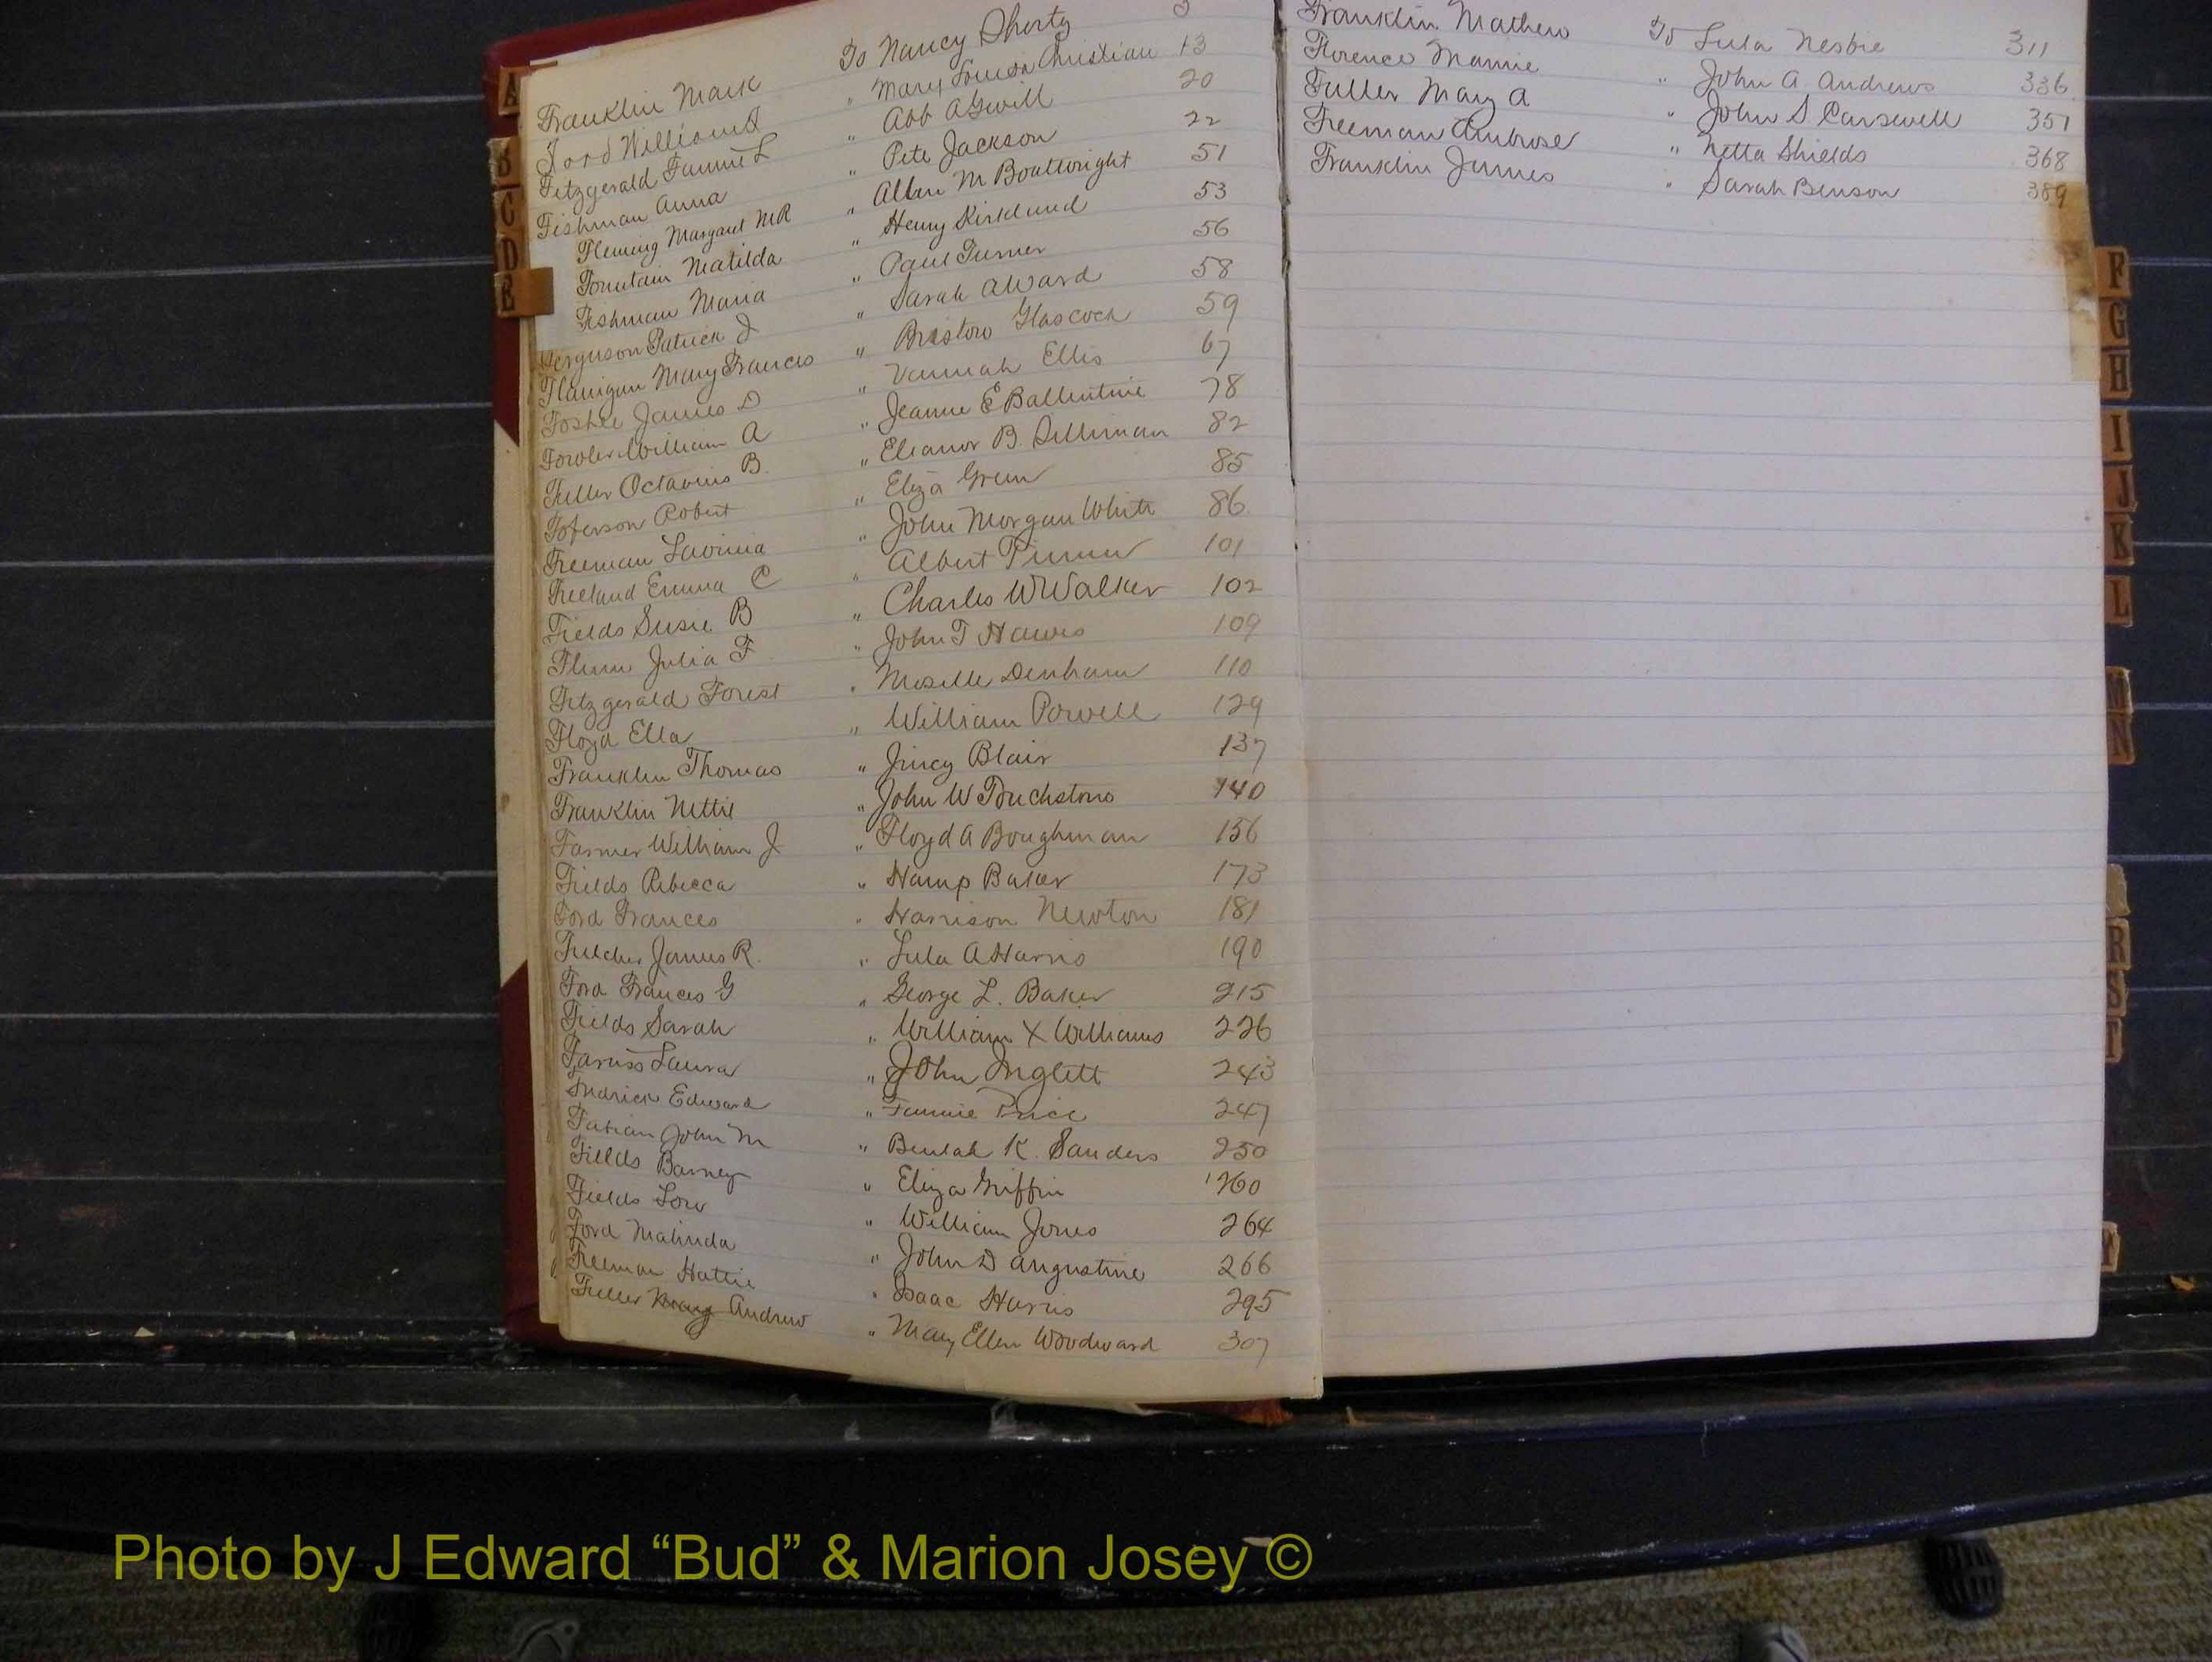 Franklin Mark To Nancy Shorty
Ford William " Mary Louisa Christian 13
Fitzgerald Fannie L " Abb A Gwill 20
Fishman Anna " Pete Jackson 22
Fleming Margaret MR " Allen M Boatwright 51
Fountain Matilda " Henry Kirkland 53
Fishman Maria " Paul Turner 56
Ferguson Patrick J " Sarah A Ward 58
Flanigan Mary Frances " Bristow Glascock 59
James D " Vannah Ellis 67
Fowler William A " Jeannie E Ballentine 78
Fuller Octavius B. " Eleanor B. Silliman 82
Robert " Eliza Green 85
Freeman Lavinia " John Morgan White 86
Freeland Emma C " Albert 101
Fields Susie B " Charles W Walker 102
Julia F " John T Hawes 109
Fitzgerald Forest " Mozelle Denham 110
Floyd Ella " William Powell 129
Franklin Thomas " Jincy Blair 137
Franklin Nettie " John W Touchstone 140
Farmer William J " Floyd A Boughman 156
Fields Rebecca " Hamp Baker 173
Ford Frances " Harrison Newton 181
Fulcher James R. " Lula A Harris 190
Ford Frances G " George L. Baker 215
Fields Sarah " William X Williams 226
Laura " John Inglett 243
Edward " Fannie Price 247
John M " Beulah K. Sanders 250
Fields Barney " Eliza Griffin 260
Fields Lou " William Jones 264
Ford Malinda " John D Augustine 266
Freeman Hattie " Isaac Harris 295
Fuller Mary Andrew " Mary Ellen Woodward 307
Franklin Mathew To Lula Nesbie 311
Florence Mamie " John A Andrews 336
Fuller Mary A " John S Carswell 351
Freeman Ambrose " Netta Shields 368
Franklin James " Sarah Benson 389
A
B
C
D
E
F
G
H
I
J
K
L
M
N
R
S
T
Y
Photo by J Edward “Bud” & Marion Josey ©